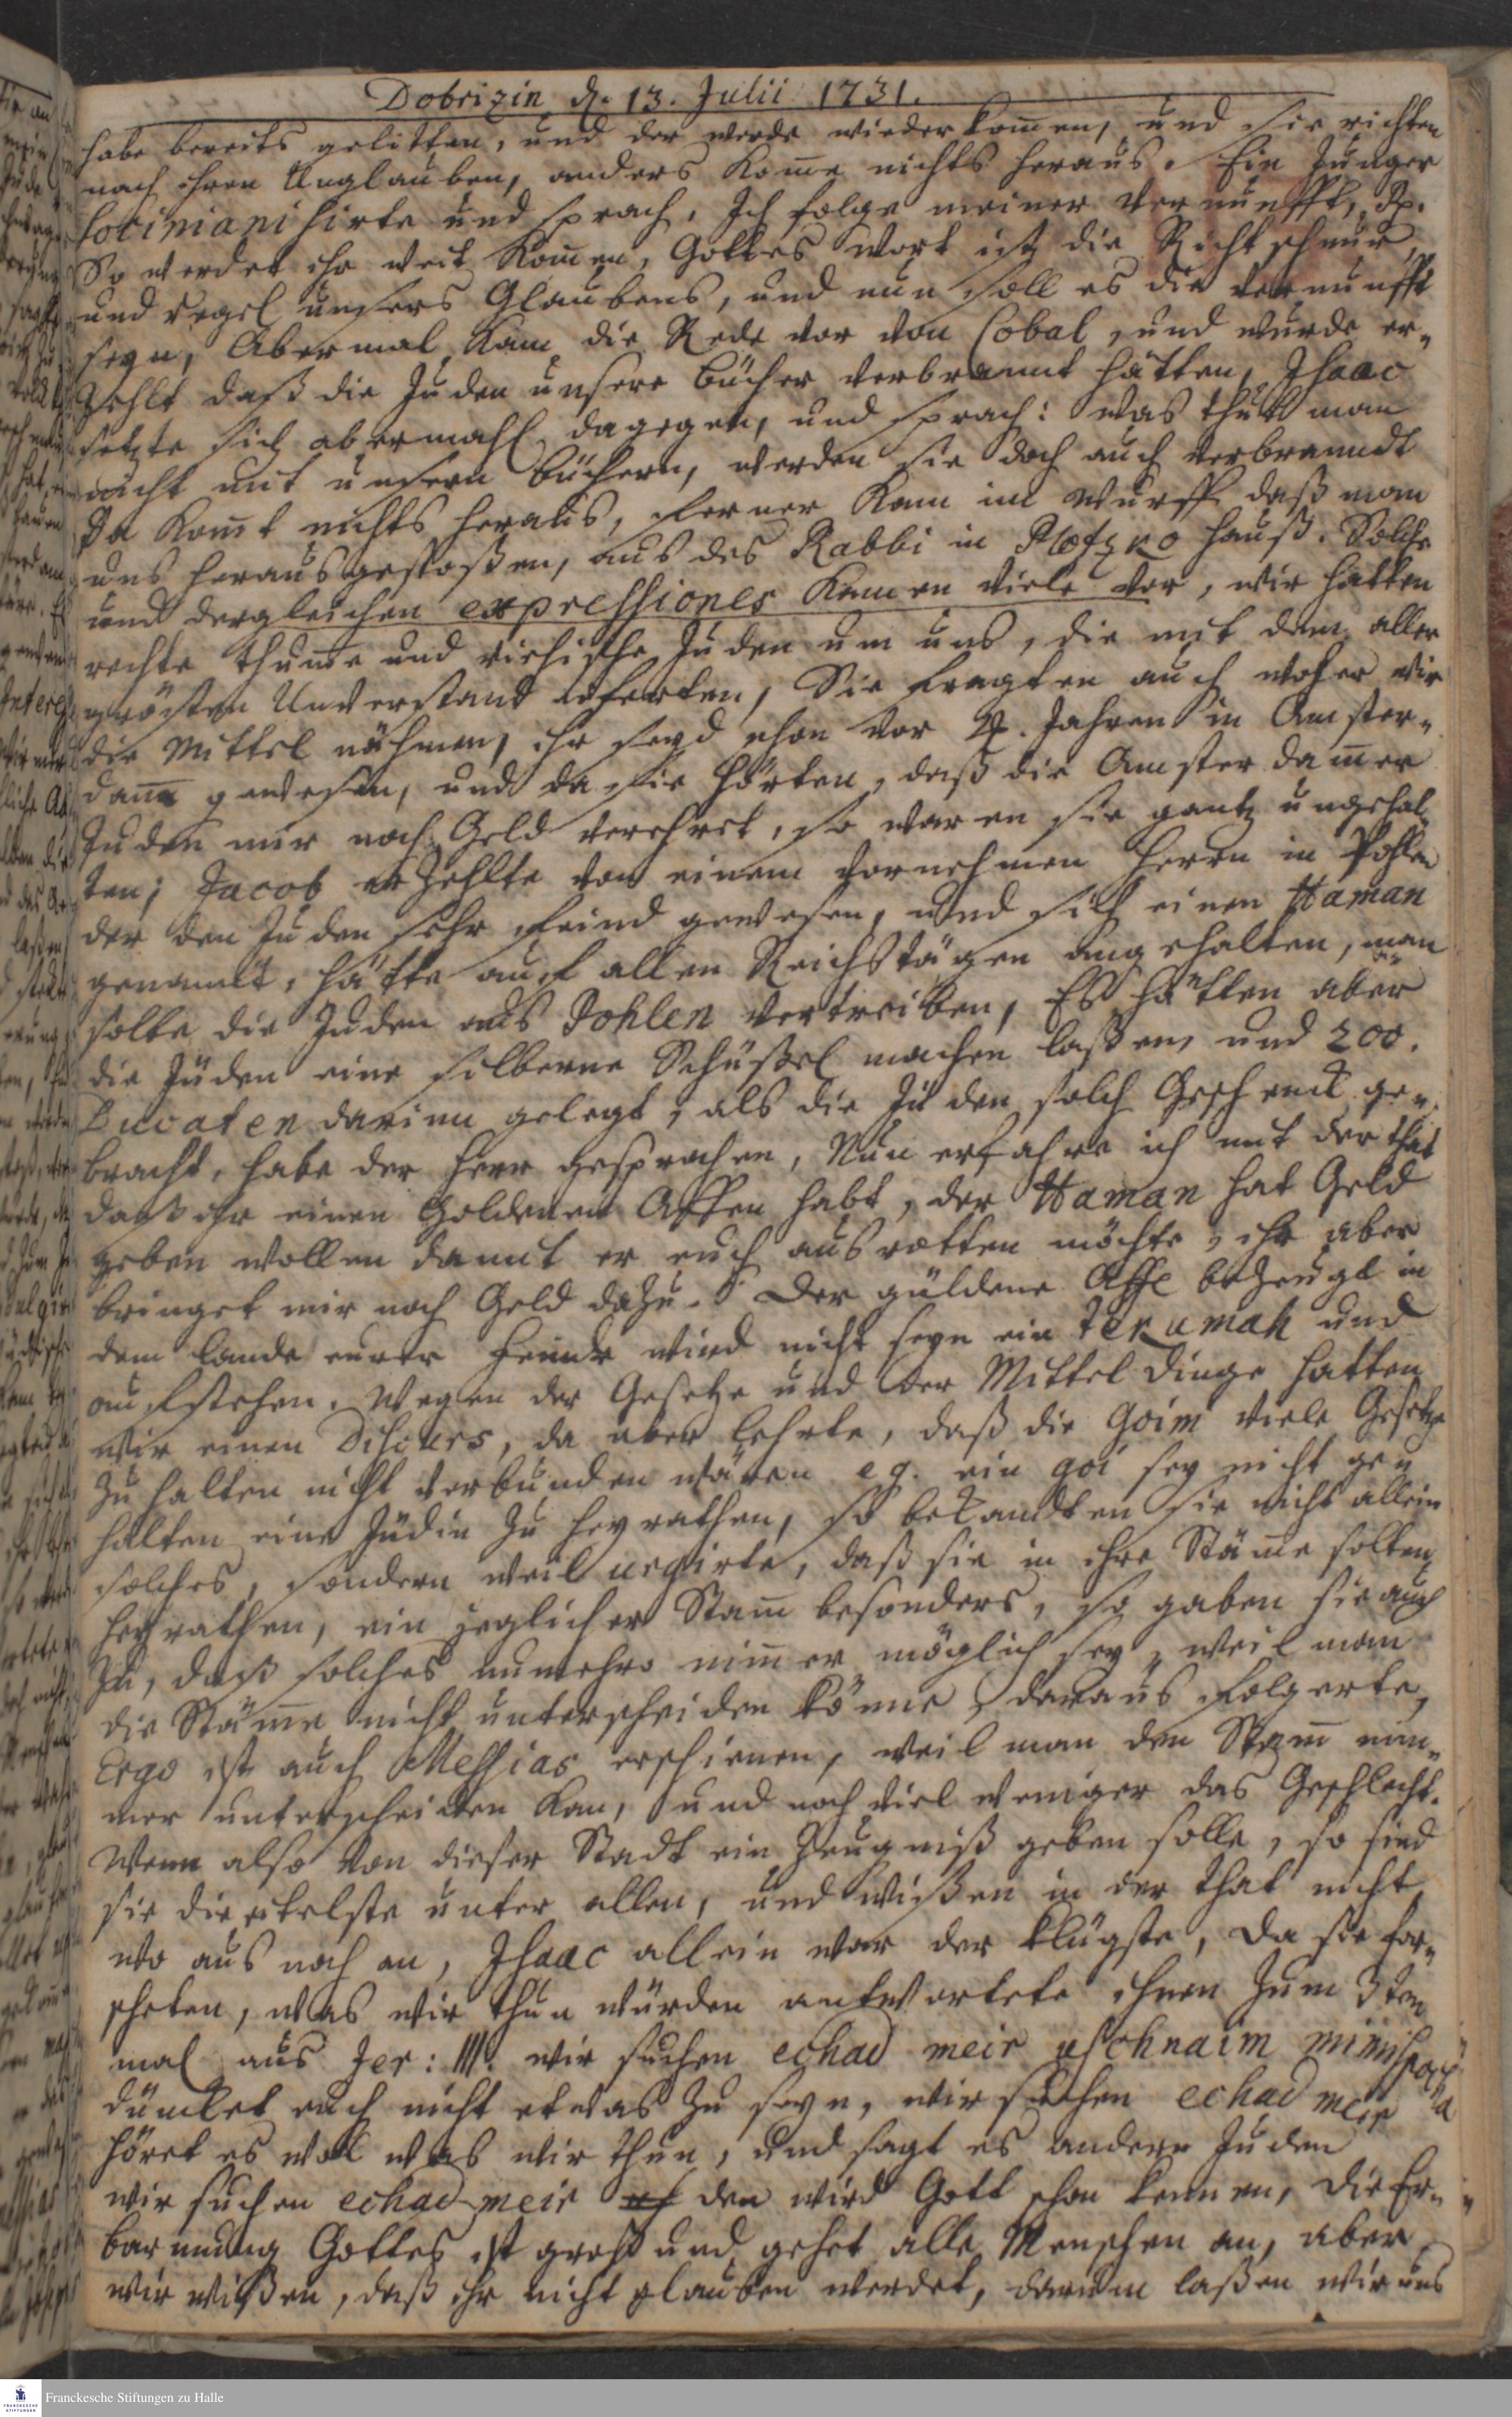 Dobrizin d. 13. Julii 1731.
habe bereits gelitten, und der werde wiederkom̄en, und sie richten
nach ihren Unglauben, anders kom̄e nichts heraus. Ein Junger
Socinianisirte und sprach, Ich folge meiner Vernunfft, Rp.
So werdet ihr weit kom̄en, Gottes Wort ist die Richtschnur,
und regel unsers Glaubens, und nun soll es die Vernunfft
seyn, Abermal kam die Rede vor von Cobal, und wurde er„
zehlt daß die Juden unsere bücher verbrannt hätten, Isaac
setzte sich abermahl dagegen, und sprach: was thut man
nicht mit unsern büchern, werden sie doch auch verbranndt
Da kom̄t nichts heraus, ferner kam im wurff daß man
uns herausgestoßen, aus des Rabbi in Plotzko Hauß. Solche
und dergleichen expressiones kamen viele vor, wir hatten
rechte thum̄e und viehische Juden um uns, die mit dem aller
grösten Unverstand eiferten, Sie fragten auch woher wir
die Mittel nähmen, ihr seyd schon vor 2. Jahren in Amster„
dam̄ gewesen, und da sie hörten, daß die Amsterdam̄er
Juden mir noch Geld verehret, so waren sie gantz ungehal„
ten; Jacob erzehlte von einem vornehmen Herrn in Pohlen
der den Juden sehr feind gewesen, und sich einen Haman
genannt, hätte auf allen Reichstägen angehalten, man
solte die Juden aus Pohlen vertreiben, Es hätten aber
die Juden eine silberne Schüßel machen laßen, und 200.
Ducaten darinn gelegt, als die Juden solch Geschenck ge„
bracht, habe der Herr gesprochen, Nun erfahre ich mit der that
daß ihr einen Goldenen Affen habt, der Haman hat Geld
geben wollen damit er euch ausrotten möchte, ihr aber
bringet mir noch Geld dazu. Der güldene Affe bezeugt in
dem lande eurer feinde wird nicht seyn ein Tekumah und
aufstehen. Wegen der Gesetze und der Mittel dinge hatten
wir einen Discurs, da aber lehrte, daß die Goim viele Gesetze
zu halten nicht verbunden wären e.g. ein goi sey nicht ge„
halten eine Jüdin zu heyrathen, so bekandten sie nicht allein
solches, sondern weil urgirte, daß sie in ihre Stäm̄e solten
heyrathen, ein jeglicher Stam̄ besonders, so gaben sie auch
zu, daß solches nunmehro nim̄er möglich sey, weil man
die Stäm̄e nicht unterscheiden könne, daraus folgerte,
Ergo ist auch Messias erschienen, weil man den Stam̄ nim„
mer unterscheiden kan, und noch viel weniger das Geschlecht.
Wenn also von dieser Stadt ein Zeugniß geben solle, so sind
sie die eitelste unter allen, und wißen in der that nicht
wo aus noch an, Isaac allein war der klügste, Da sie for„
scheten, was wir thun würden antwortete ihnen zum 3ten
mal aus Jer: III. wir suchen echad meir uschnaim mimischpacha
düncket euch nicht etwas zu seyn, wir suchen echad meir
höret es wol was wir thun, und sagt es andern Juden
wir suchen echad meir den wird Gott schon kennen, die Er„
barmung Gottes ist groß und gehet alle Menschen an, aber
wir wißen, daß ihr nicht glauben werdet, darum laßen wir uns
Franckesche Stiftungen zu Halle